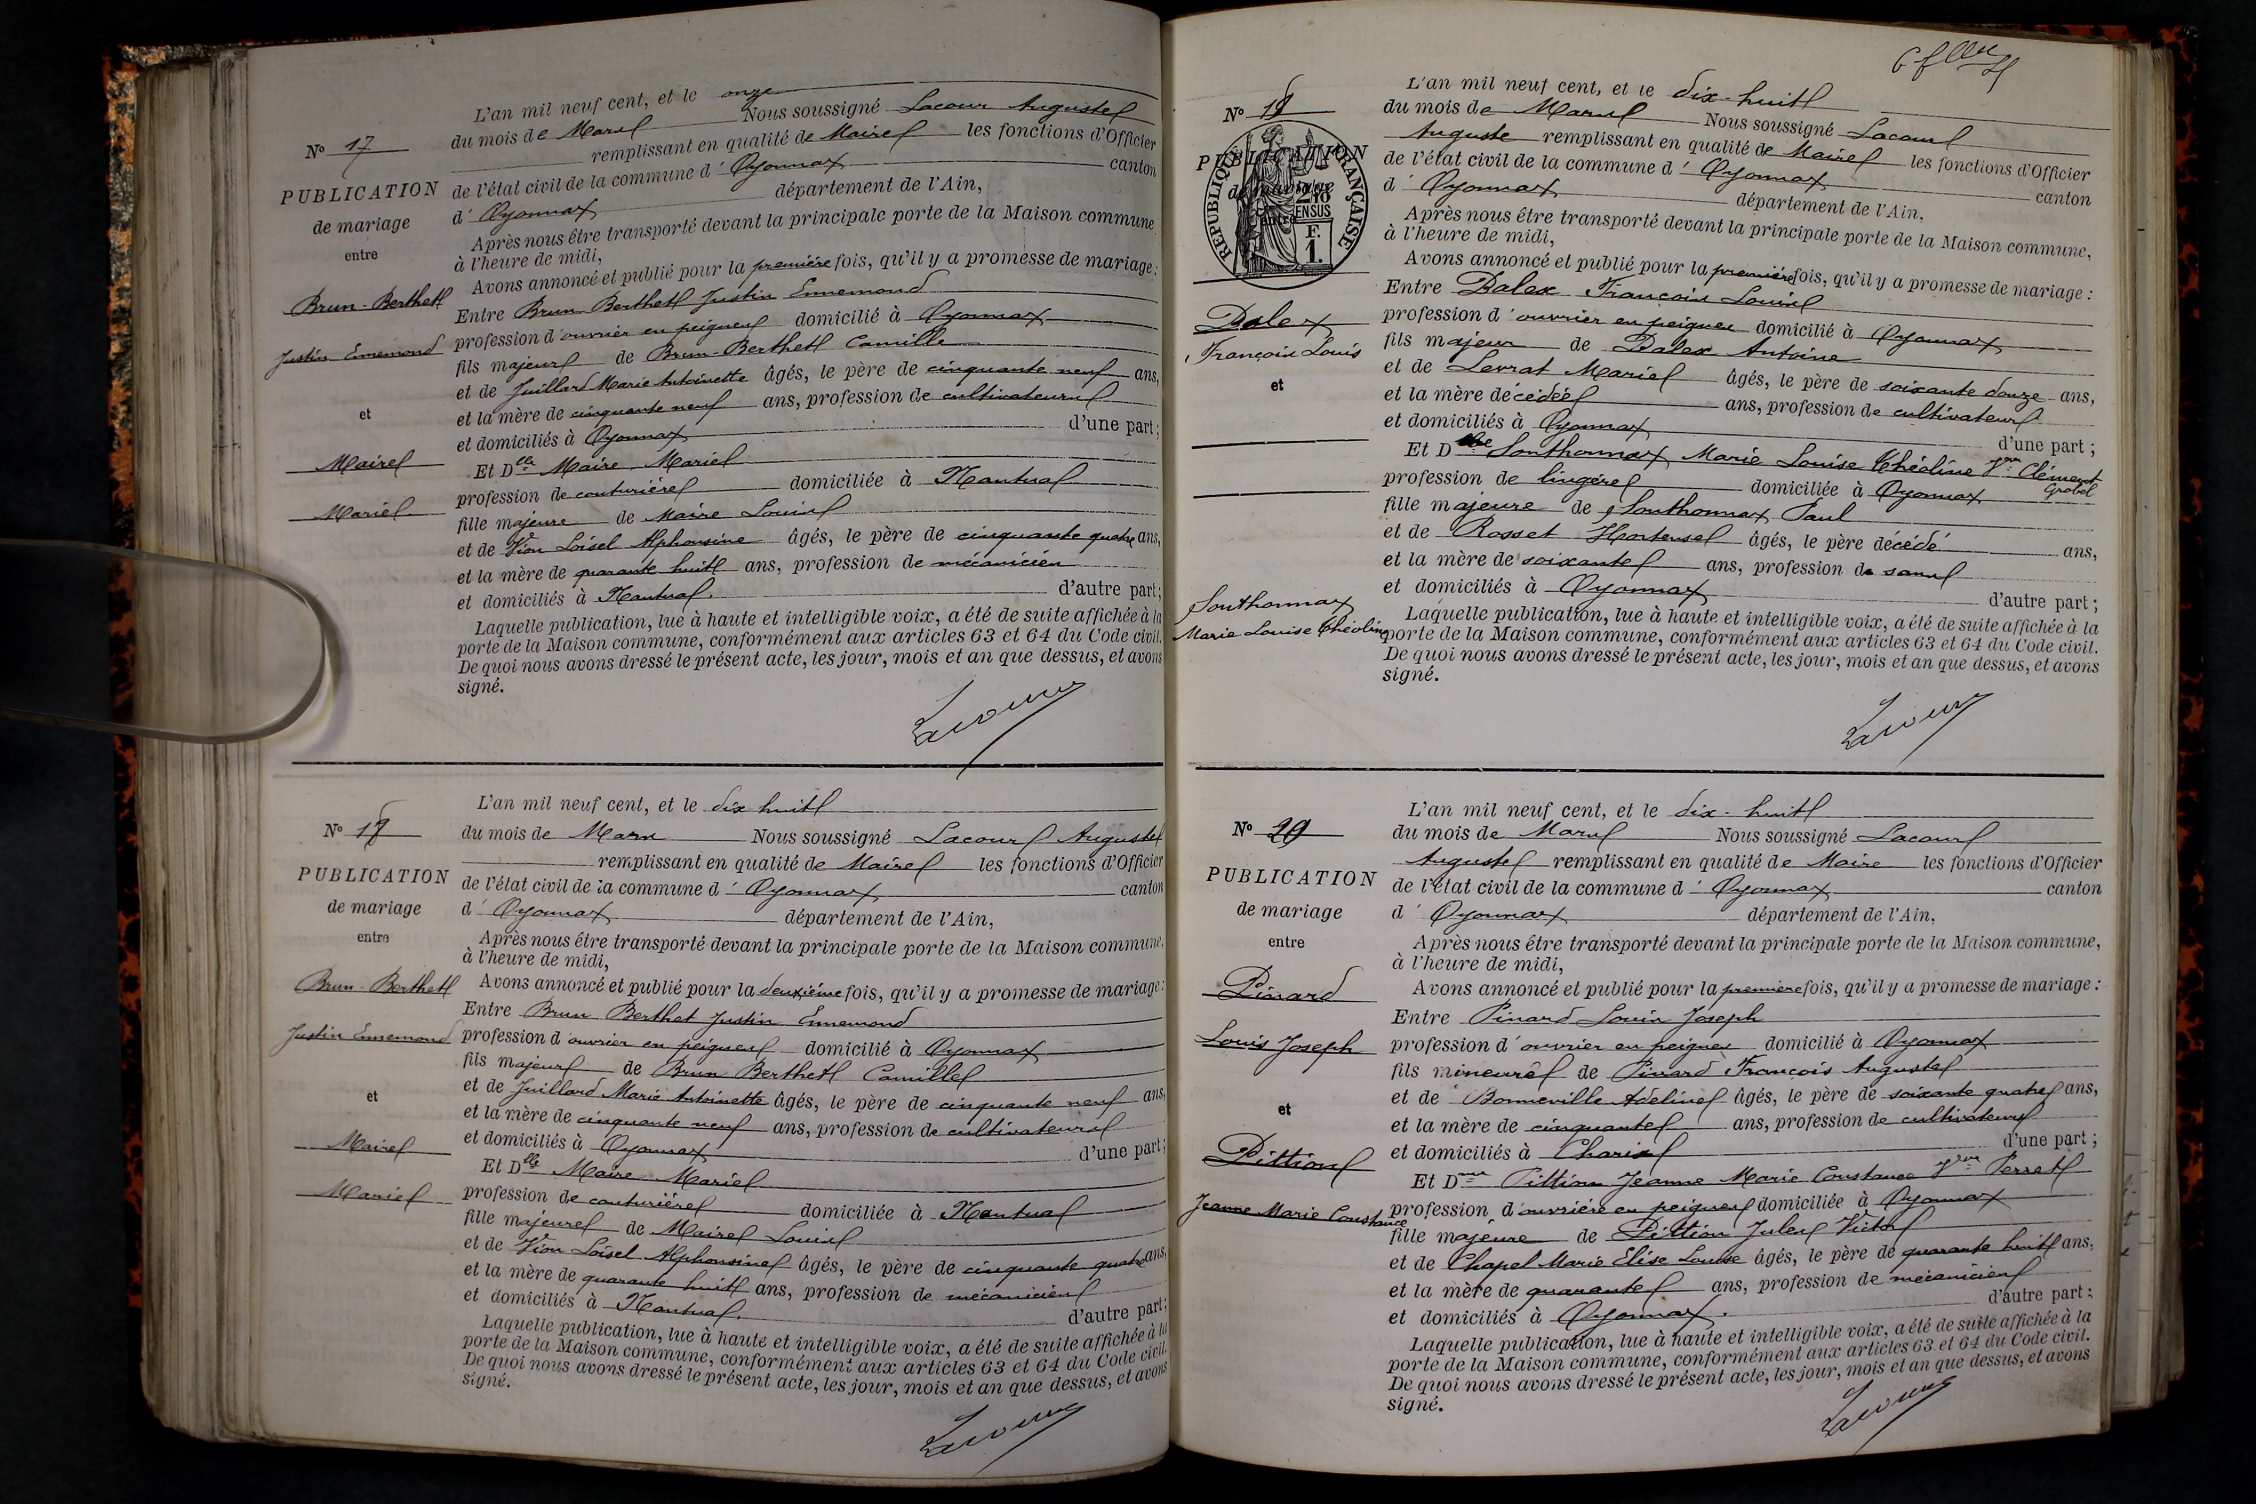 L'an mil neuf cent, et le onze
N° 17
du mois de Mars Nous soussigné Lacour Auguste
remplissant en qualité de Maire les fonctions d'Officier
PUBLICATION
de mariage
entre
de l'état civil de la commune d' Oyonnax canton
d' Oyonnax département de l'Ain,
Après nous être transporté devant la principale porte de la Maison commune,
à l'heure de midi,
Avons annoncé et publié pour la première fois, qu'il y a promesse de mariage:
Brun-Berthet
Justin Ennemond
et
Maire
Marie
Entre Brun Berthet Justin Ennemond
profession d'ouvrier en peignes domicilié à Oyonnax
fils majeur de Brun-Berthet Camille
et de Juillard Marie Antoinette âgés, le père de cinquante neuf ans,
et la mère de cinquante neuf ans, profession de cultivateurs
et domiciliés à Oyonnax d'une part;
Et Dlle Maire Marie
profession de couturière domiciliée à Nantua
fille majeure de Maire Louis
et de Vion Loisel Alphonsine âgés, le père de cinquante quatre ans,
et la mère de quarante huit ans, profession de mécanicien
et domiciliés à Nantua. d'autre part;
Laquelle publication, lue à haute et intelligible voix, a été de suite affichée à la
porte de la Maison commune, conformément aux articles 63 et 64 du Code civil.
De quoi nous avons dressé le présent acte, les jour, mois et an que dessus, et avons
signé.
Lacour
L'an mil neuf cent, et le dix huit
N° 18
du mois de Mars Nous soussigné Lacour Auguste
remplissant en qualité de Maire les fonctions d'Officier
PUBLICATION
de mariage
entre
de l'état civil de la commune d' Oyonnax canton
d' Oyonnax département de l'Ain,
Après nous être transporté devant la principale porte de la Maison commune,
à l'heure de midi,
Avons annoncé et publié pour la deuxième fois, qu'il y a promesse de mariage:
Brun-Berthet
Justin Ennemond
et
Maire
Marie
Entre Brun Berthet Justin Ennemond
profession d'ouvrier en peignes domicilié à Oyonnax
fils majeur de Brun Berthet Camille
et de Juillard Marie Antoinette âgés, le père de cinquante neuf ans,
et la mère de cinquante neuf ans, profession de cultivateurs
et domiciliés à Oyonnax d'une part;
Et Dlle Maire Marie
profession de couturière domiciliée à Nantua
fille majeure de Maire Louis
et de Vion Loisel Alphonsine âgés, le père de cinquante quatre ans,
et la mère de quarante huit ans, profession de mécanicien
et domiciliés à Nantua. d'autre part;
Laquelle publication, lue à haute et intelligible voix, a été de suite affichée à la
porte de la Maison commune, conformément aux articles 63 et 64 du Code civil.
De quoi nous avons dressé le présent acte, les jour, mois et an que dessus, et avons
signé.
Lacour
L'an mil neuf cent, et le dix-huit
N°
du mois de Mars Nous soussigné Lacour
Auguste remplissant en qualité de Maire les fonctions d'Officier
PUBLICATION
de mariage
entre
RÉPUBLIQUE FRANÇAISE
2/10
EN SUS
F.
1.
de l'état civil de la commune d' Oyonnax canton
d' Oyonnax département de l'Ain.
Après nous être transporté devant la principale porte de la Maison commune,
à l'heure de midi,
Avons annoncé et publié pour la première fois, qu'il y a promesse de mariage:
Dalex
François Louis
et
Sonthonnax
Marie Louise Théoline
Entre Dalex François Louis
profession d'ouvrier en peignes domicilié à Oyonnax
fils majeur de Dalex Antoine
et de Levrat Marie âgés, le père de soixante douze ans,
et la mère décédée ans, profession de cultivateur
et domiciliés à Oyonnax d'une part;
Et D Sonthonnax Marie Louise Théoline Vve Clément
Grobel
profession de lingère domiciliée à Oyonnax
fille majeure de Sonthonnax Paul
et de Rosset Hortense âgés, le père décédé ans,
et la mère de soixante ans, profession de sans
et domiciliés à Oyonnax d'autre part;
Laquelle publication, lue à haute et intelligible voix, a été de suite affichée à la
porte de la Maison commune, conformément aux articles 63 et 64 du Code civil.
De quoi nous avons dressé le présent acte, les jour, mois et an que dessus, et avons
signé.
Lacour
L'an mil neuf cent, et le dix-huit
N° 20
du mois de Mars Nous soussigné Lacour
Auguste remplissant en qualité de Maire les fonctions d'Officier
PUBLICATION
de mariage
entre
de l'état civil de la commune d' Oyonnax canton
d' Oyonnax département de l'Ain.
Après nous être transporté devant la principale porte de la Maison commune,
à l'heure de midi,
Avons annoncé et publié pour la première fois, qu'il y a promesse de mariage:
Pinard
Louis Joseph
et
Pittion
Jeanne Marie Constance
Entre Pinard Louis Joseph
profession d'ouvrier en peignes domicilié à Oyonnax
fils mineur de Pinard François Auguste
et de Bonneville Adeline âgés, le père de soixante quatre ans,
et la mère de cinquante ans, profession de cultivateurs
et domiciliés à Charix d'une part;
Et Dme Pittion Jeanne Marie Constance Vve Perret
profession d'ouvrière en peignes domiciliée à Oyonnax
fille majeure de Pittion Jules Victor
et de Chapel Marie Elise Louise âgés, le père de quarante huit ans,
et la mère de quarante ans, profession de mécanicien
et domiciliés à Oyonnax. d'autre part;
Laquelle publication, lue à haute et intelligible voix, a été de suite affichée à la
porte de la Maison commune, conformément aux articles 63 et 64 du Code civil.
De quoi nous avons dressé le présent acte, les jour, mois et an que dessus, et avons
signé.
Lacour